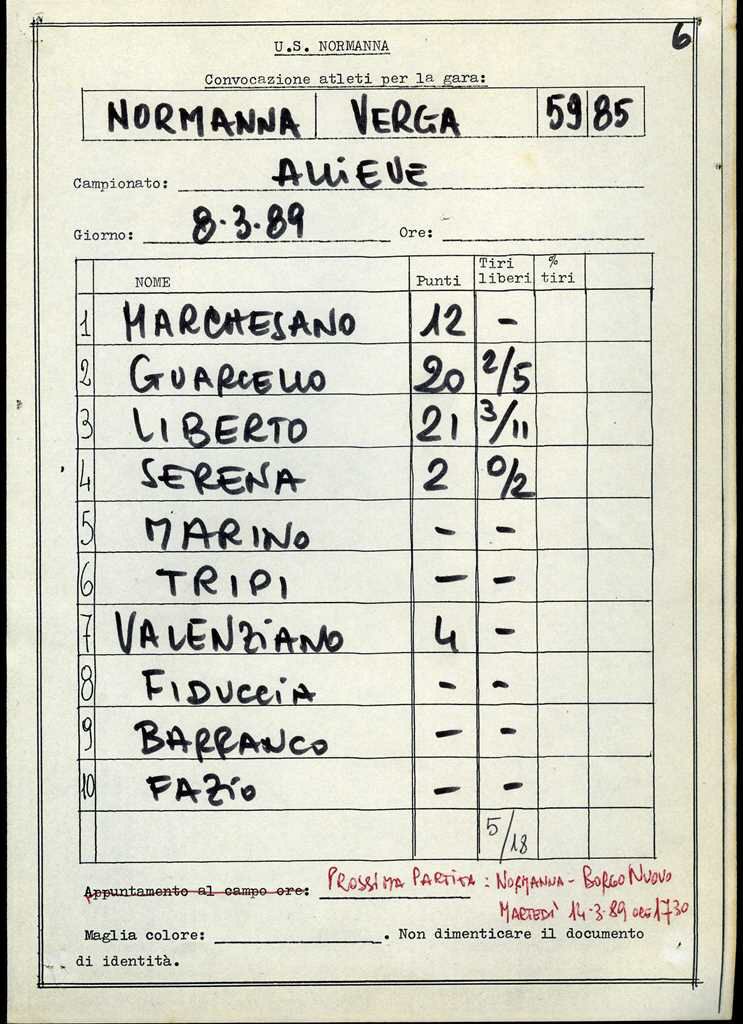 6
U.S. NORMANNA
Convocazione atleti per la gara:
NORMANNA VERGA 59 85
Campionato: ALLIEVE
Giorno: 8.3.89 Ore:
NOME Punti Tiri liberi % tiri
1 MARCHESANO 12 -
2 GUARCELLO 20 2/5
3 LIBERTO 21 3/11
4 SERENA 2 0/2
5 MARINO - -
6 TRIPI - -
7 VALENZIANO 4 -
8 FIDUCCIA - -
9 BARRANCO - -
10 FAZIO - -
5/18
Appuntamento al campo ore: PROSSIMA PARTITA: NORMANNA - BORGO NUOVO
MARTEDÌ 14.3.89 ORE 1730
Maglia colore: . Non dimenticare il documento
di identità.